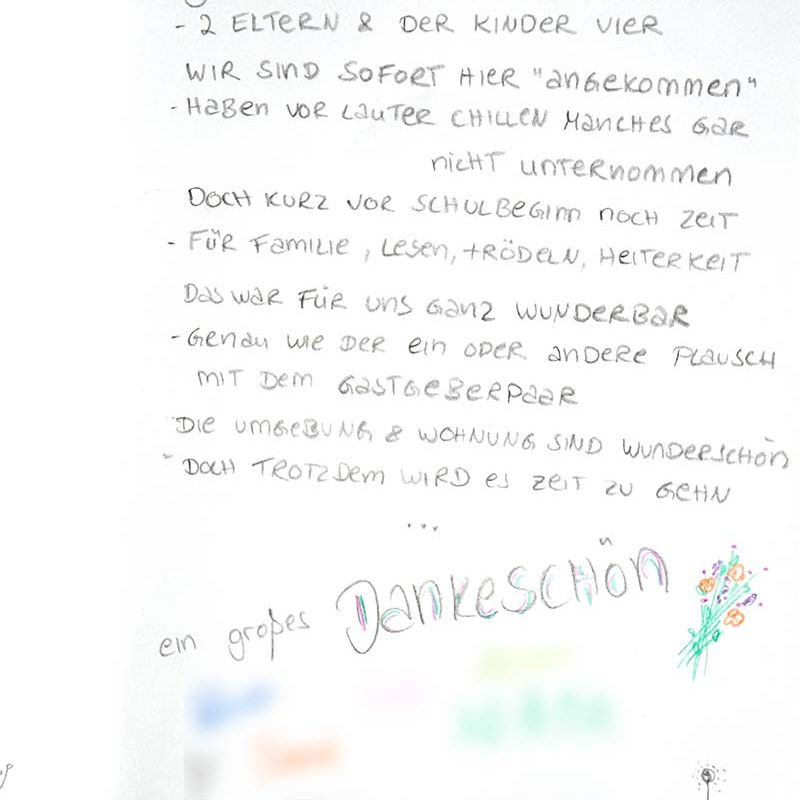 - 2 ELTERN & DER KINDER VIER
WIR SIND SOFORT HIER "angekommen"
- HaBen VOR Lauter CHILLEN MANCHES GAR
nicht unternommen
DOCH KURZ VOR SCHULBEGINN NOCH ZEIT
- FÜR FAMILIE, Lesen, tRÖDELN, HEITERKEIT
Das war FÜR uns GANZ WUNDERBAR
- Genau wie DER ein ODER andere PLAUSCH
MIT Dem GASTGEBERPAAR
DIE UMGEBUNG & WOHNUNG SIND WUNDERSCHÖN
- DOCH TROTZDEM WIRD es ZEIT ZU GEHN
...
ein großes Dankeschön